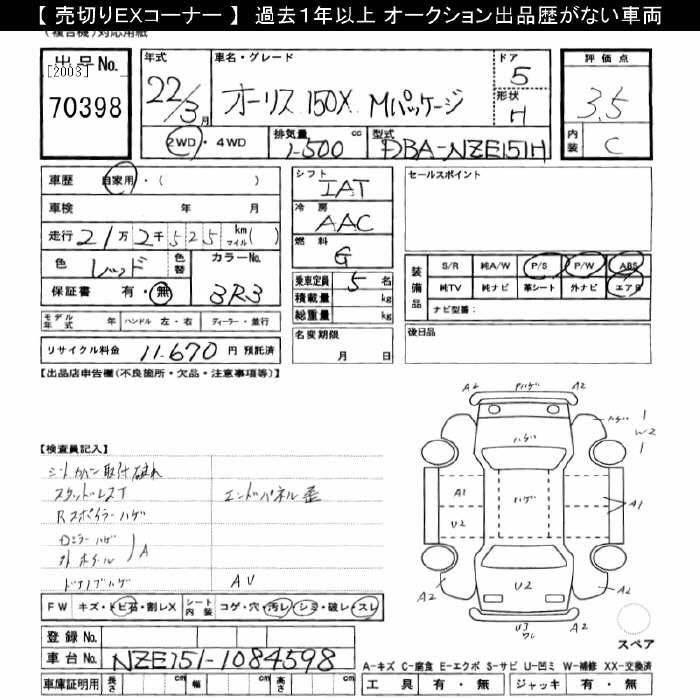 【 売切りEXコーナー 】 過去1年以上 オークション出品歴がない車両
(複合機)対応用紙
出品No.
[2003]
70398
年式
22/3月
車名・グレード
オーリス 150X Mパッケージ
ドア
5
形状
H
評価点
3.5
内装 C
2WD・4WD
排気量 1-500 cc
型式 DBA-NZE151H
車歴 自家用・( )
車検 年 月
走行 21万2千525 km マイル( )
色 レッド 色替 カラーNo. 3R3
保証書 有・無
モデル年式 年 ハンドル 左・右 ディーラー・並行
リサイクル料金 11-670 円 預託済
シフト IAT
冷房 AAC
燃料 G
乗車定員 5 名
積載量 kg
総重量 kg
名変期限
月 日
セールスポイント
装備品 S/R 純A/W P/S P/W ABS
純TV 純ナビ 革シート 外ナビ エアB
ナビ型番:
後日品
【出品店申告欄(不良箇所・欠品・注意事項等)】
【検査員記入】
シートカバー取付破れ
スタッドレスT
エンドパネル歪
Rスポイラーハゲ
Dミラーハゲ
ホイール A
ドアノブハゲ
AU
FW キズ・トビ石・割レX シート内装 コゲ・穴・汚レ・シミ・破レ・スレ
登録No.
車台No. NZE151-1084598
車庫証明用 長さ cm 幅 cm 高さ cm
A2 ハゲ A2
ハゲ
W2
ハゲ
A1
U2
ハゲ
A1
U2
A2 A2
スペア
A-キズ C-腐食 E-エクボ S-サビ U-凹ミ W-補修 XX-交換済
工具 有・無 ジャッキ 有・無